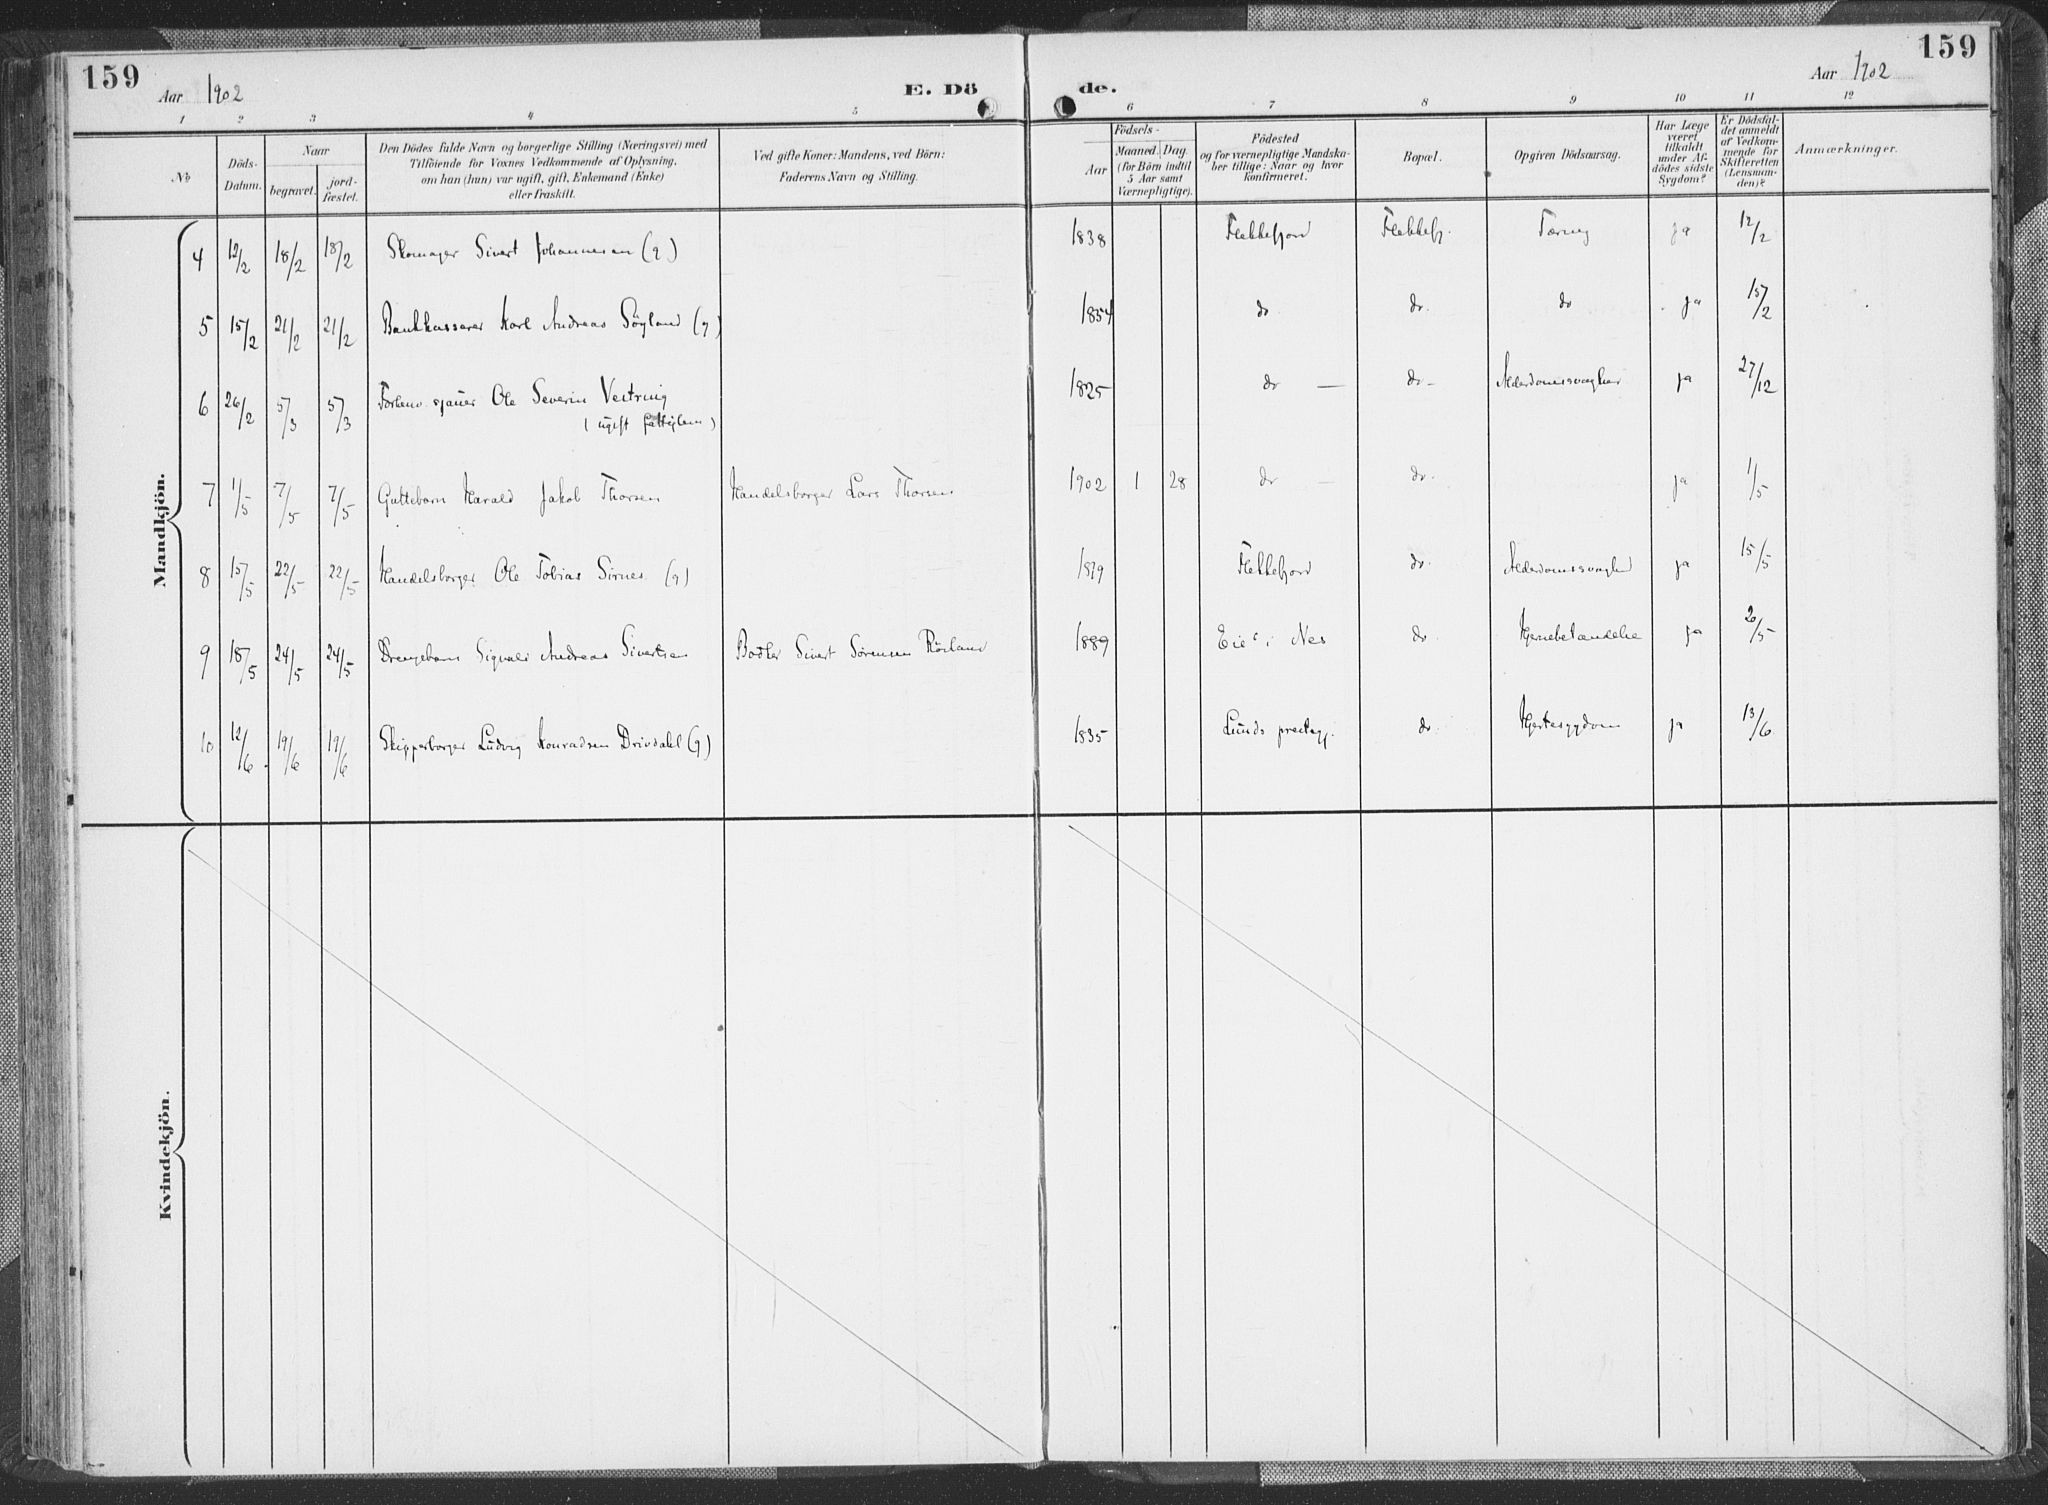 159
Aar 1902
E. Dö
de.
Aar 1902
159
1 2 3 4 5 6 7 8 9 10 11 12
No
Döds-
Datum.
Naar
begravet.
jord-
fæstet.
Den Dödes fulde Navn og borgerlige Stilling (Næringsvei) med
Tilföiende for Voxnes Vedkommende af Oplysning,
om han (hun) var ugift, gift, Enkemand (Enke)
eller fraskilt.
Ved gifte Koner: Mandens, ved Börn:
Faderens Navn og Stilling.
Födsels-
Aar
Maaned. Dag.
(for Börn indtil
5 Aar samt
Værnepligtige).
Födested
og for værnepligtige Mandska-
ber tillige: Naar og hvor
konfirmeret.
Bopæl.
Opgiven Dödsaarsag.
Har Læge
været
tilkaldt
under Af-
dödes sidste
Sygdom?
Er Dödsfal-
det anmeldt
af Vedkom-
mende for
Skifteretten
(Lensman-
den)?
Anmærkninger.
Mandkjön.
4 12/2 18/2 18/2 Skomager Sivert Johannesen (g) 1838 Flekkefjord Flekkefj. Tæring ja 12/2
5 15/2 21/2 21/2 Bankkasserer Karl Andreas Söyland (g) 1854 do do do ja 15/2
6 26/2 5/3 5/3 Ole Severin Vestring 1825 do — do — Alderdomssvaghed ja 27/12
(ugift fattiglem)
7 1/5 7/5 7/5 Guttebarn Harald Jakob Thorsen Handelsborger Lars Thorsen 1902 1 28 do — do. ja 1/5
8 15/5 22/5 22/5 Handelsborger Ole Tobias Sirnes (g) 1819 Flekkefjord do. Alderdomssvaghed ja 15/5
9 18/5 24/5 24/5 Drengebarn Sigvald Andreas Sivertsen Bødker Sivert Sørensen 1889 Eie i Nes do Hjernebetændelse ja 20/5
10 12/6 19/6 19/6 Skipperborger Ludvig Konradsen Drivdahl (g) 1835 Lunds prestegj. do. Hjertesygdom ja 13/6
Kvindekjön.